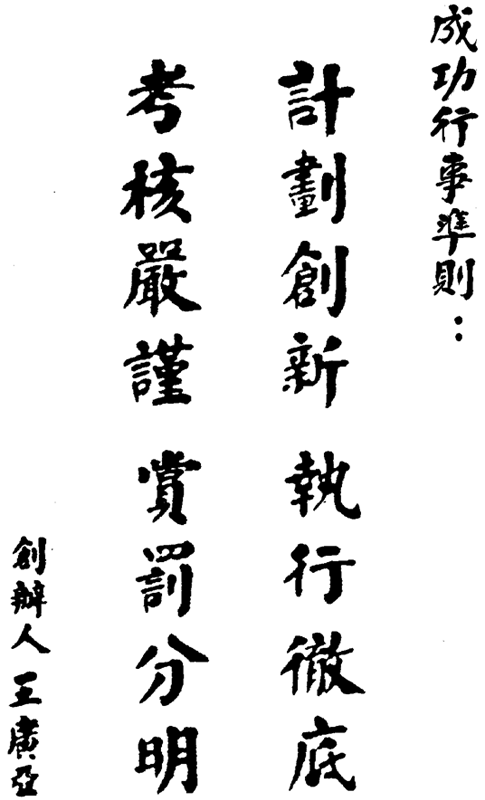 成功行事準則：
計劃創新 執行徹底
考核嚴謹 賞罰分明
創辦人 王廣亞